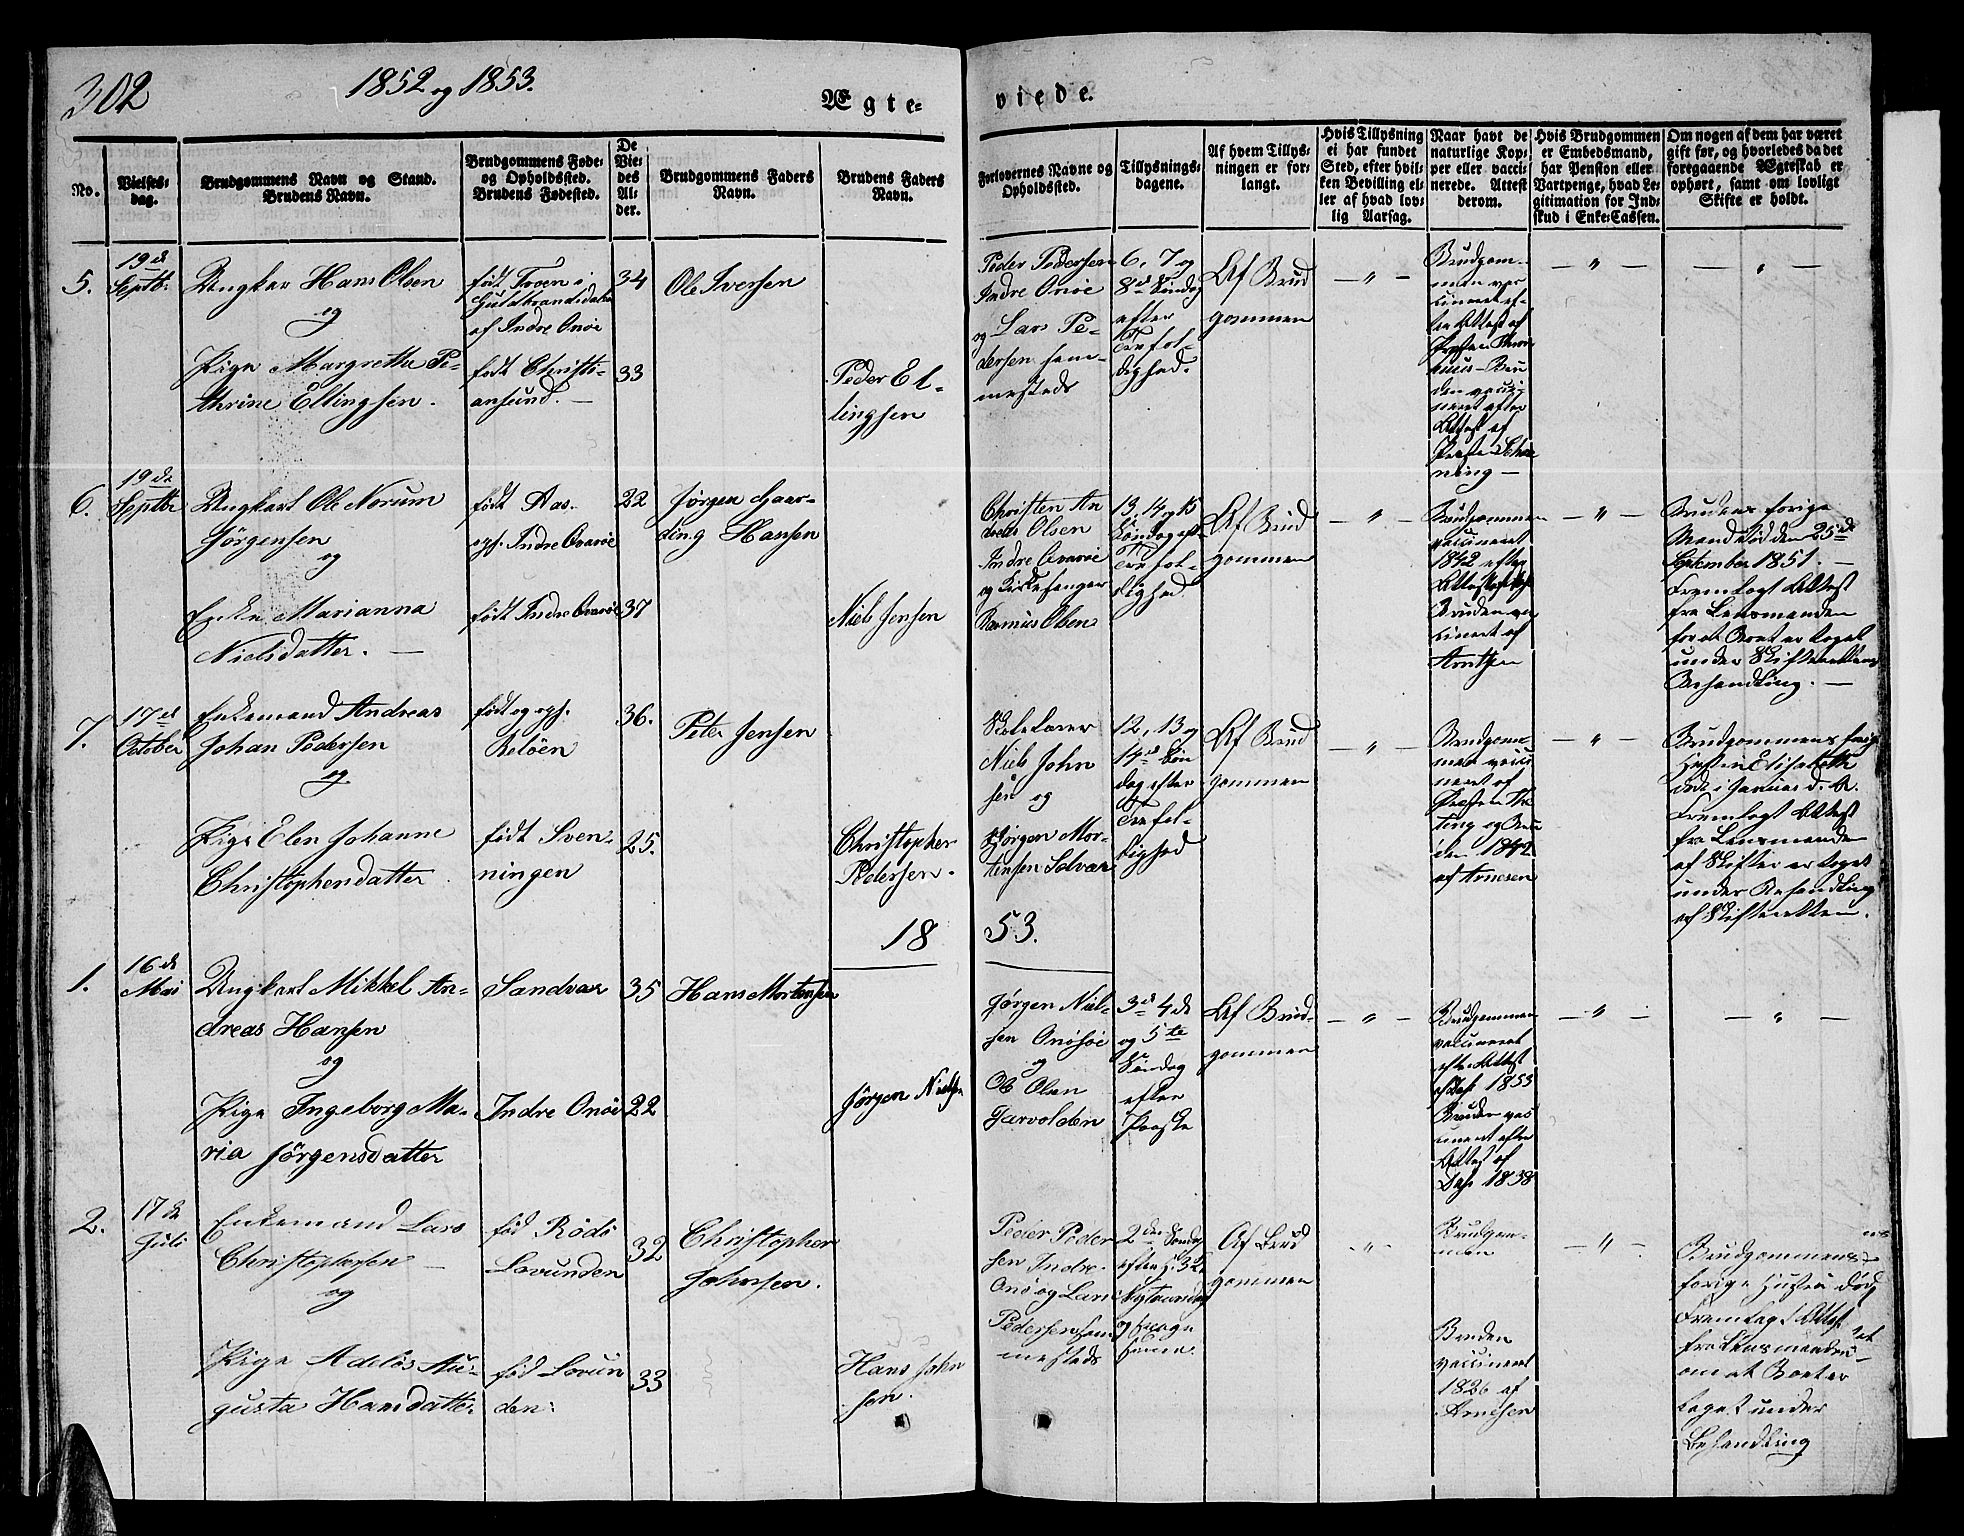 302
1852 og 1853.
Ægte=
viede.
No.
Vielses=
dag.
Brudgommens Navn og Stand.
Brudens Navn.
Brudgommens Føde=
og Opholdssted.
Brudens Fødested.
De
Vie=
des
Al=
der.
Brudgommens Faders
Navn.
Brudens Faders
Navn.
Forlovernes Navne og
Opholdssted.
Tillysnings=
dagene.
Af hvem Tillys=
ningen er for=
langt.
Hvis Tillysning
ei har fundet
Sted, efter hvil=
ken Bevilling el=
ler af hvad lov=
lig Aarsag.
Naar havt de
naturlige Kop=
per eller vacci=
nerede. Attest
derom.
Hvis Brudgommen
er Embedsmand,
har Pension eller
Vartpenge, hvad Le=
gitimation for Ind=
skud i Enke=Cassen.
Om nogen af dem har været
gift før, og hvorledes da det
foregaaende Ægteskab er
ophørt, samt om lovligt
Skifte er holdt.
5.
19de
Septbr
Ungkar Hans Olsen
og
Pige Margretha Pe-
thrine Ellingsen.
født Troen i
Gulbrandsdalen
af Indre Onøe
født Christi-
ansund. —
34
33
Ole Iversen
Peder El-
lingsen
Peder Pedersen
Indre Onøe
og Lars Pe-
dersen sam-
mesteds
6, 7 og
8de Søndag
efter
Trefol-
dighed.
Af Brud
gommen
— " —
Brudgom-
men vac
cineret ef-
ter Attest af
Præsten
den vacci-
neret efter
Attest af
Præsten
ning —
— " —
— " —
6.
19de
Septbr
Ungkarl Ole Norum
Jørgensen
og
Enke Marianna
Nielsdatter. —
født Aas.
oph. Indre Qvarøe
født Indre Qvarøe
22
37
Jørgen Haar-
ding Hansen
Niels Jensen
Christen An
dreas Olsen
Indre Qvarøe
og Kirkesanger
Rasmus Olsen
13, 14 og 15
Søndag eft.
Trefol-
dighed
Af Brud
gommen
— " —
Brudgommen
vaccineret
1842 efter
Attest af
Bruden vac
cineret af
Arntsen
— " —
Brudens forige
Mand død den 25de
September 1851. —
Fremlagt Attest
fra Lensmanden
for at Boet er taget
under Skifterettens
Behandling. —
7.
17de
October
Enkemand Andreas
Johan Pedersen
og
Pige Elen Johanne
Christophersdatter
født og oph.
Seløen
født Sven-
ningen
36.
25.
Peter Jensen
Christopher
Pedersen.
Skolelærer
Niels John
sen og
Jørgen Mor-
tensen Solvær
12, 13 og
14de Søn
dag efter
Trefol-
dighed
Af Brud
gommen
— " —
Brudgom-
men vacci
neret af
Præsten
ting og Bru
den 1842
af Arnesen
— " —
Brudgommens forig
Hustru Elisabeth
død i Januar d. A.
Fremlagt Attest
fra Lensmanden
at Skifter er taget
under Behandling
af Skifteretten.
1853.
1.
16de
Mai
Ungkarl Mikkel An-
dreas Hansen
og
Pige Ingeborg Ma-
ria Jørgensdatter
Sandvær
Indre Onøe
35
22
Hans Mortensen
Jørgen Nielsen
Jørgen Niel-
sen Onøsøe
og
Ole Olsen
Jarvolden
3de 4de
og 5te
Søndag
efter
Paaske
Af Brud-
gommen
— " —
Brudgommen
vaccineret
efter Attest
1853
Bruden vac
cineret efter
Attest af
1838
— " —
— " —
2.
17de
Juli
Enkemand Lars
Christophersen —
og
Pige Adelös Au-
gusta Hansdatter
fød Rødö
Lovunden
fød Lovun
den:
32
33
Christopher
Johnsen.
Hans John
sen.
Peder Peder
sen Indre-
Onø og Lars
Pedersen sam
mesteds
2den Søndag
efter H. 3k.
Nytaarsdag
Af Brud
gommen
- " -
Brudgom-
men
Bruden
vaccineret
1826 af
Arnesen
— " —
Brudgommens
forige Hustru død
Fremlagt Attest
fra Lensmanden
om at Boet er
taget under
Behandling